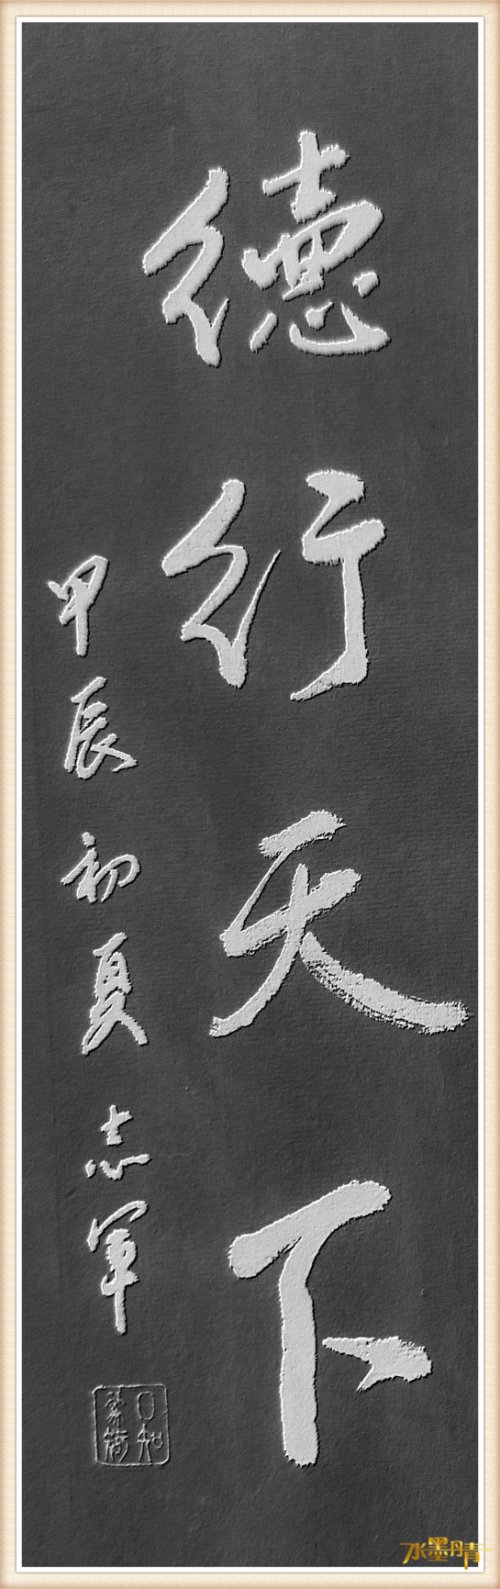 德行天下
甲辰初夏志军
水墨丹青